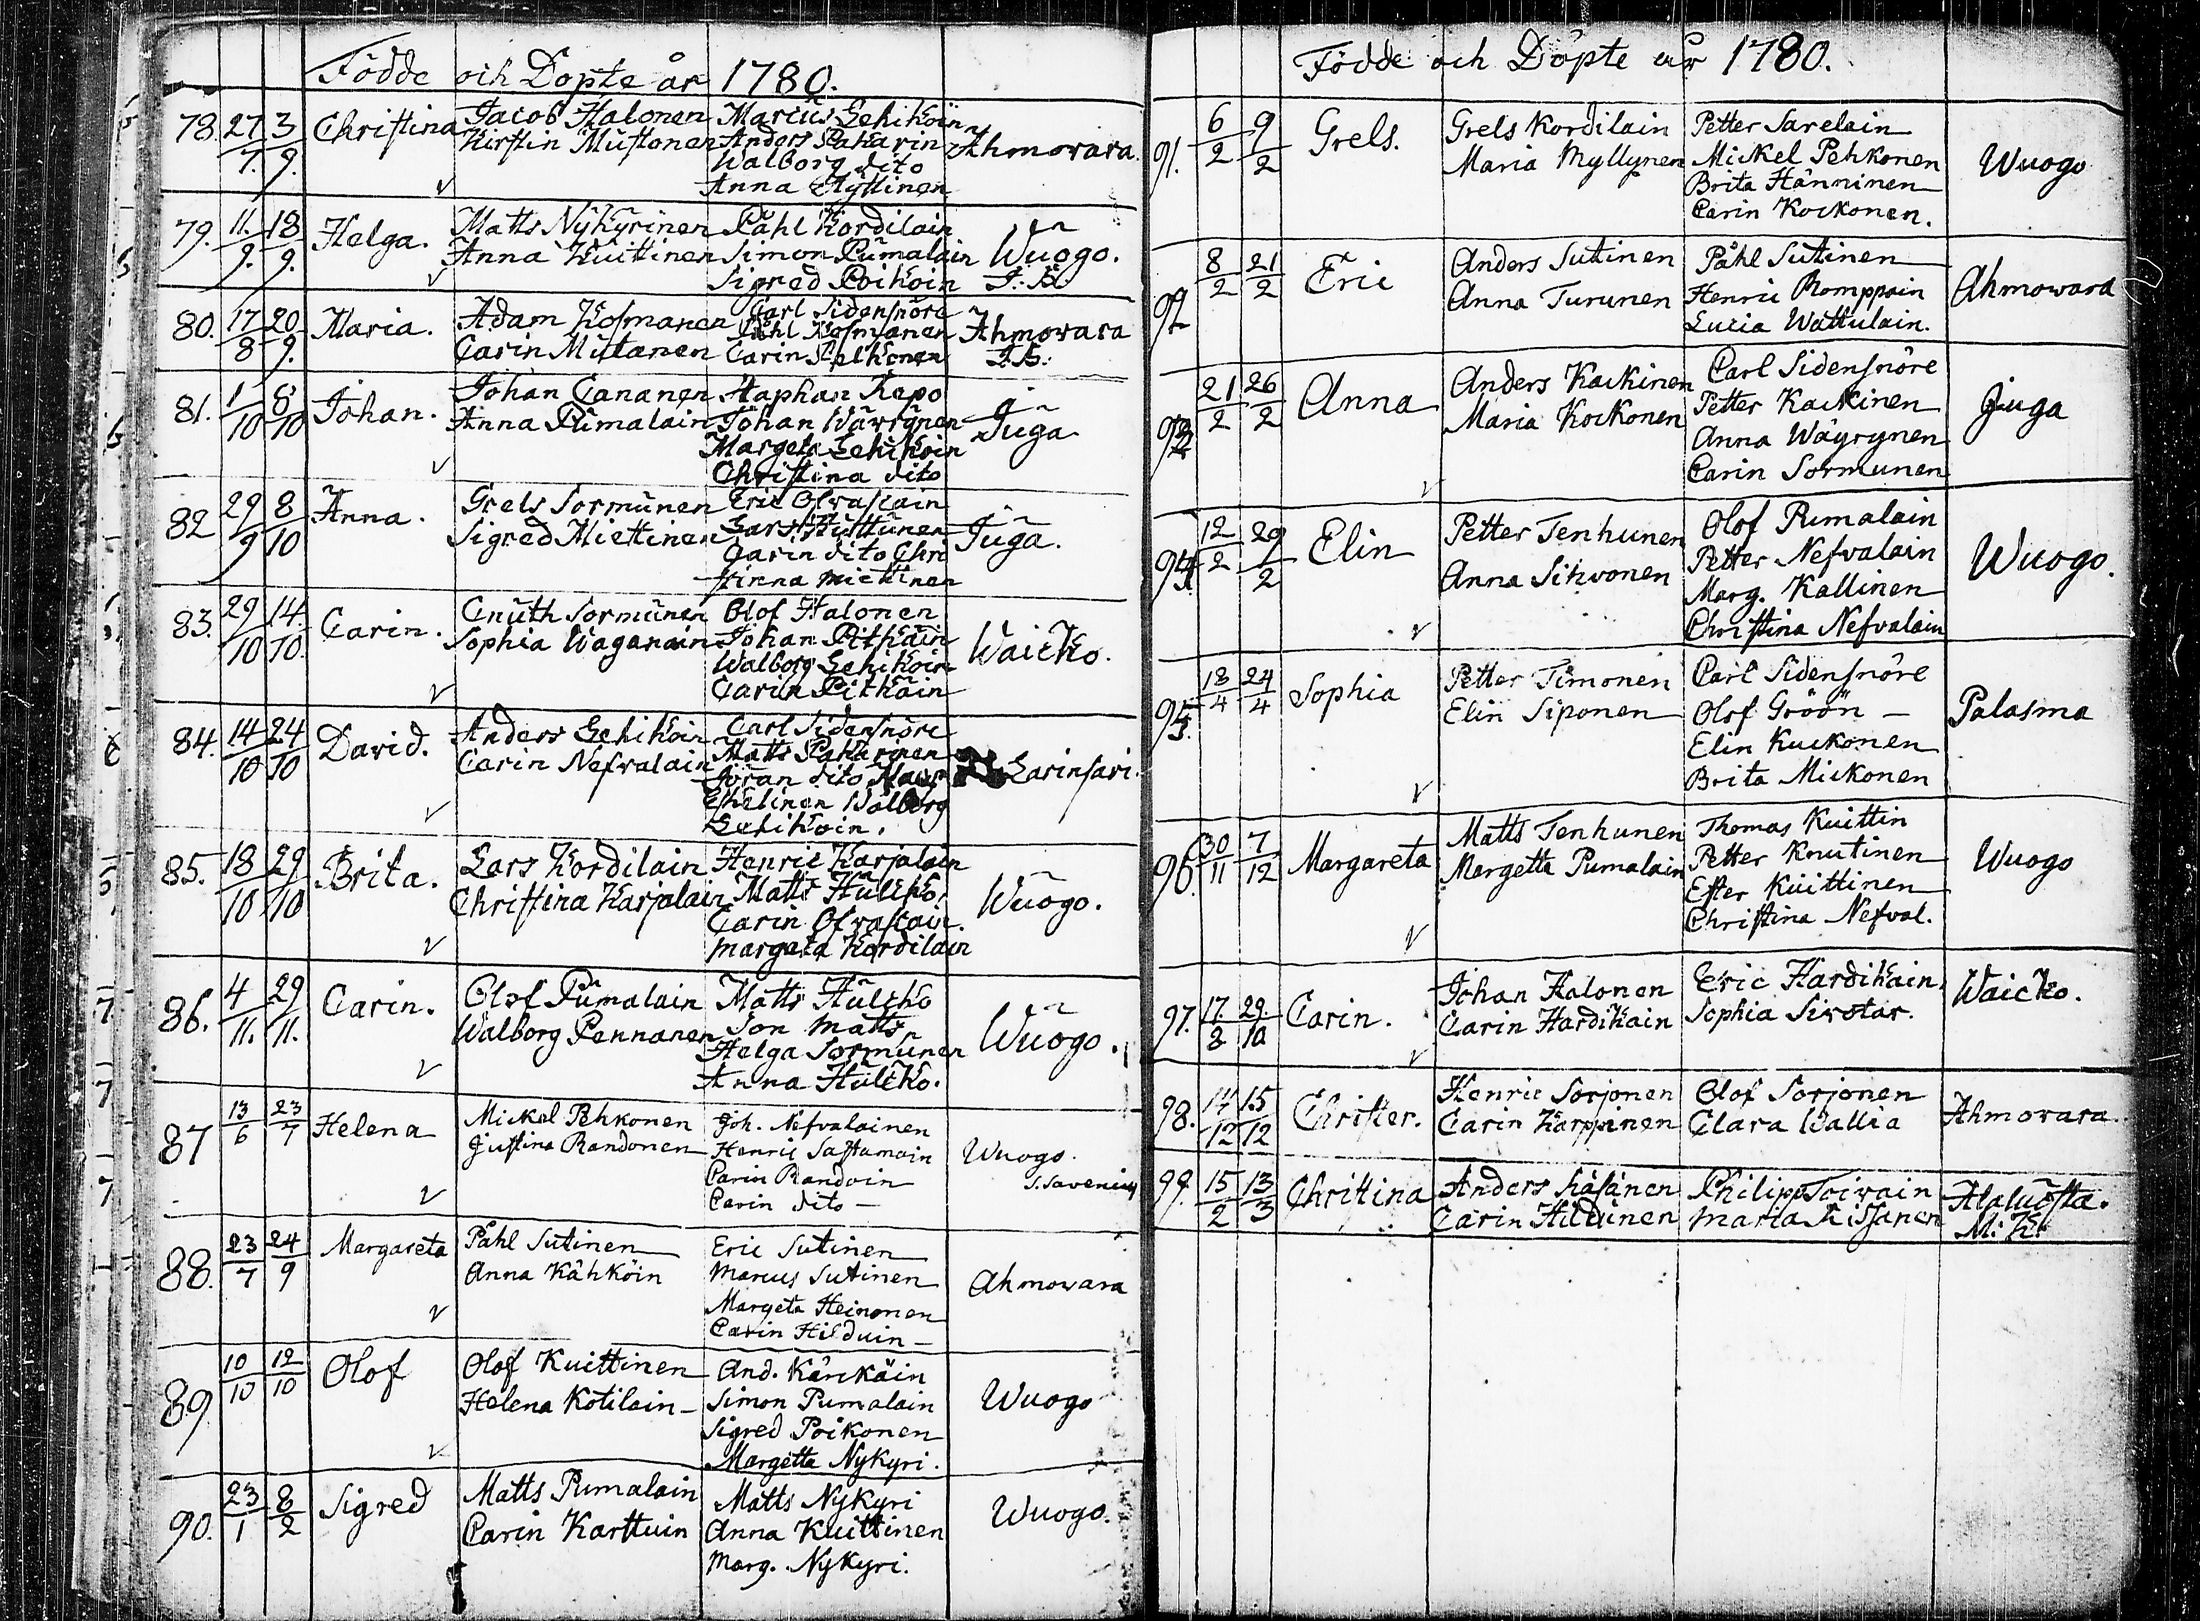 Födde och Döpte år 1780.
78. 27/7. 3/9. Christina Jacob Halonen Marcus Lehikoin
Kirstin Mustonen Anders Pakarin Ahmowara.
Walborg dito
Anna Hyttinen
79. 11./9. 18/9. Helga. Matts Nykyrinen Påhl Kordilain
Anna Kuittinen Simon Pumalain Wuogo.
Sigred Poikoin
80. 17/8 20/9. Maria. Adam Kosmanen Carl Sidensnöre
Påhl Kosmanen Ahmowara
Carin Mutanen Carin Pelkonen
81. 1/10 8/10 Johan. Johan Cananen Staphan Repo
Anna Pumalain Johan Wäyrynen Juga
Margeta Lehikoin
Christina dito
82 29/9 8/10 Anna. Grels Sormunen Eric Ofvascain
Sigred Miettinen Lars Huttunen Juga.
Carin dito Chri
stinna Miettinen
83. 29/10 14./10. Carin. Cnuth Sormunen Olof Halonen
Sophia Waganain Johan Pitkäin Waicko.
Walborg Lehikoin
Carin Pitkäin
84. 14/10 24/10 David. Anders Lehikoin Carl Sidensnöre
Carin Nefvalain Matts Pakarinen Larinsari.
Göran dito
Eskelinen Walborg
Lehikoin.
85. 18/10 29/10 Brita. Lars Kordilain Henric Karjalain
Christina Karjalain Matts Hulcko. Wuogo.
Carin Ofvascain.
Margeta Kordilain
86. 4/11. 29/11. Carin. Olof Pumalain Matts Hulcko
Walborg Pennanen Son Matts Wuogo.
Helga Sormunen
Anna Hulcko.
87 13/6 23/7 Helena Mickel Pehkonen Joh. Nefvalainen
Justina Randonen Henric Sastamoin Wuogo.
Carin Randoin S. Savenius
Carin dito
88. 23/7 24/9 Margareta Påhl Sutinen Eric Sutinen
Anna Kähköin Marcus Sutinen Ahmowara
Margeta Heinonen
Carin Hilduin
89 10/10 12/10 Olof Olof Kuittinen And. Kärckäin
Helena Kotilain Simon Pumalain Wuogo
Sigred Poikonen
Margetta Nykyri.
90. 23/1 8/2 Sigred Matts Pumalain Matts Nykyri
Carin Karttuin Anna Kuittinen Wuogo.
Marg. Nykyri.
Födde och Döpte år 1780.
91. 6/2 9/2 Grels. Grels Kordilain Petter Sarelain
Maria Myllynen Mickel Pehkonen Wuogo
Brita Hänninen
Carin Kockonen.
92 8/2 21/2 Eric Anders Sutinen Påhl Sutinen
Anna Turunen Henric Romppain Ahmowara
Lucia Wattulain.
93 21/2 26/2 Anna Anders Kackinen Carl Sidensnöre
Maria Kockonen Petter Kackinen Juga
Anna Wäyrynen
Carin Sormunen
94. 12/2 29/2 Elin Petter Tenhunen Olof Pumalain
Anna Sihvonen Petter Nefvalain Wuogo.
Marg. Kallinen
Christina Nefvalain
95. 18/4 24/4 Sophia Petter Timonen Carl Sidensnöre
Elin Siponen Olof Gröön Palasma
Elin Kuckonen
Brita Mickonen
96. 30/11 7/12 Margareta Matts Tenhunen Thomas Kuittin
Margetta Pumalain Petter Knutinen Wuogo
Ester Kuittinen
Christina Nefval.
97. 17./8 29./10 Carin. Johan Halonen Eric Hardikain. Waicko.
Carin Hardikain Sophia Sirotar.
98. 14/12 15/12 Christer. Henric Sorjonen Olof Sorjonen
Carin Karppinen Clara Wallia Ahmowara.
99. 15/2 13/3 Christina Anders Philipp Toiwain
Carin Hildunen Maria Alaluosta.
M: K: